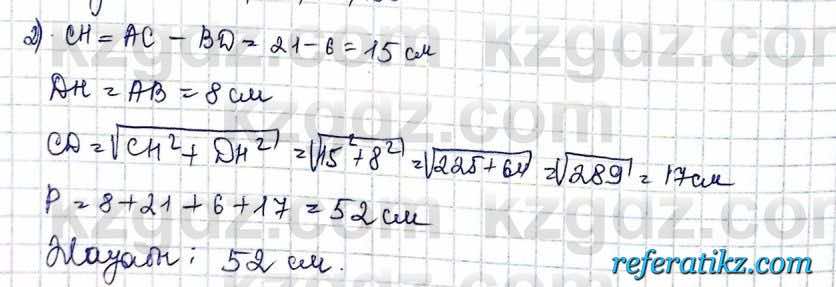 2) CH = AC - BD = 21 - 6 = 15 см
DH = AB = 8 см
CD = √(CH² + DH²) = √(15² + 8²) = √(225 + 64) = √289 = 17 см
P = 8 + 21 + 6 + 17 = 52 см
Жауабы: 52 см.
referatikz.com